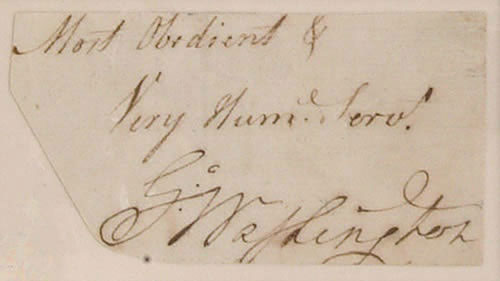 Most Obedient &
Very Humᵉ. Servᵗ.
Gᵒ: Washington